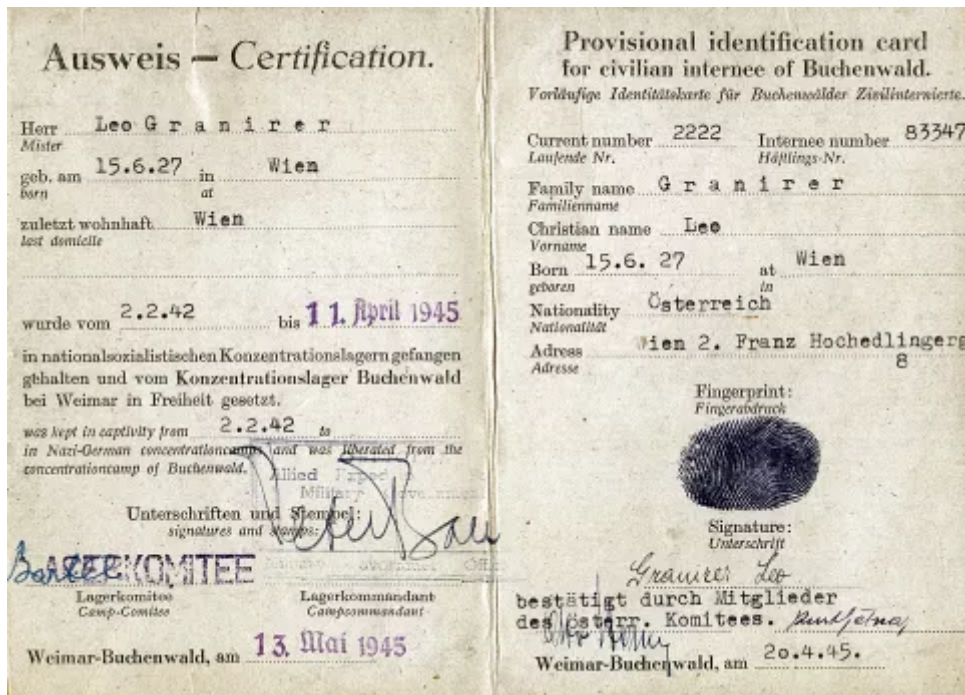 Ausweis — Certification.
Herr Leo Granirer
Mister
geb. am 15.6.27 in Wien
born at
zuletzt wohnhaft Wien
last domicile
wurde vom 2.2.42 bis 11. April 1945
in nationalsozialistischen Konzentrationslagern gefangen
gehalten und vom Konzentrationslager Buchenwald
bei Weimar in Freiheit gesetzt.
was kept in captivity from 2.2.42 to
in Nazi-German concentrationcamps and was liberated from the
concentrationcamp of Buchenwald.
Allied
Military
Unterschriften und Stempel:
signatures and stamps:
LAGERKOMITEE
Lagerkomitee Lagerkommandant
Camp-Comitee Campcommandant
Weimar-Buchenwald, am 13. Mai 1945
Provisional identification card
for civilian internee of Buchenwald.
Vorläufige Identitätskarte für Buchenwälder Zivilinternierte.
Current number 2222 Internee number 83347
Laufende Nr. Häftlings-Nr.
Family name Granirer
Familienname
Christian name Leo
Vorname
Born 15.6. 27 at Wien
geboren in
Nationality Österreich
Nationalität
Adress Wien 2. Franz Hochedlingerg
Adresse 8
Fingerprint:
Fingerabdruck
Signature:
Unterschrift
Granirer Leo
bestätigt durch Mitglieder
des österr. Komitees.
Weimar-Buchenwald, am 20.4.45.